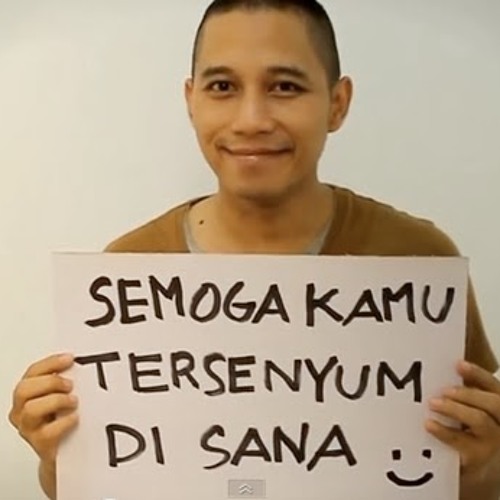 SEMOGA KAMU
TERSENYUM
DI SANA